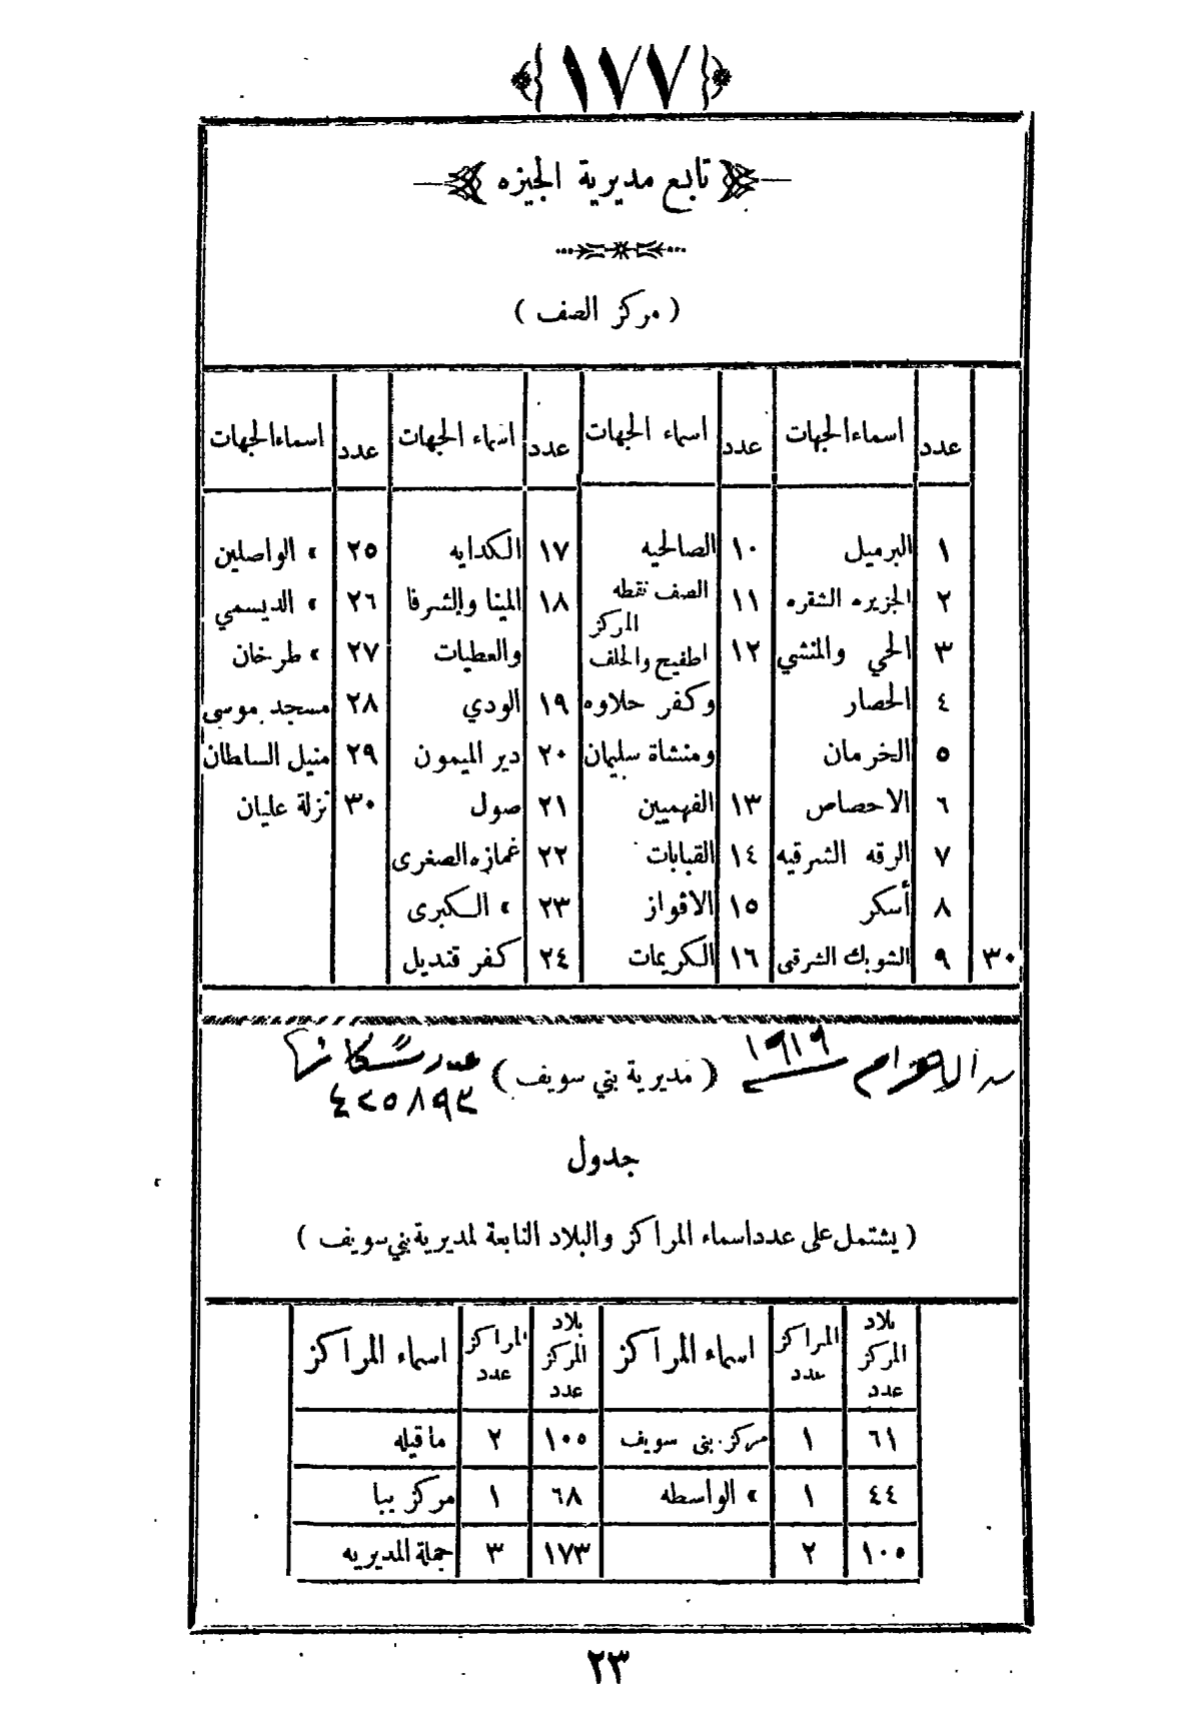 ١٧٧
تابع مديرية الجيزه
( مركز الصف )
عدد اسماء الجهات عدد اسماء الجهات عدد اسماء الجهات عدد اسماء الجهات
١ البرميل ١٠ الصالحيه ١٧ الكدايه ٢٥ » الواصلين
٢ الجزيره الشقره ١١ الصف نقطه المركز ١٨ المينا والشرفا ٢٦ » الديسمي
٣ الحي والمنشي ١٢ اطفيح والخلف والعطيات ٢٧ » طرخان
٤ الحصار وكفر حلاوه ١٩ الودي ٢٨ مسجد موسى
٥ الخرمان ومنشاة سليمان ٢٠ دير الميمون ٢٩ منيل السلطان
٦ الاحصاص ١٣ الفهميين ٢١ صول ٣٠ نزلة عليان
٧ الرقه الشرقيه ١٤ القبابات ٢٢ غمازه الصغرى
٨ أسكر ١٥ الاقواز ٢٣ » الكبرى
٣٠ ٩ الشوبك الشرقى ١٦ الكريمات ٢٤ كفر قنديل
الاهرام ١٩١٩ ( مديرية بني سويف ) عدد سكانها
٤٢٥٨٩٣
جدول
( يشتمل على عدد اسماء المراكز والبلاد التابعة لمديرية بني سويف )
بلاد المركز عدد المراكز عدد اسماء المراكز بلاد المركز عدد المراكز عدد اسماء المراكز
٦١ ١ مركز بنى سويف ١٠٥ ٢ ما قبله
٤٤ ١ » الواسطه ٦٨ ١ مركز ببا
١٠٥ ٢ ١٧٣ ٣ جملة المديريه
٢٣